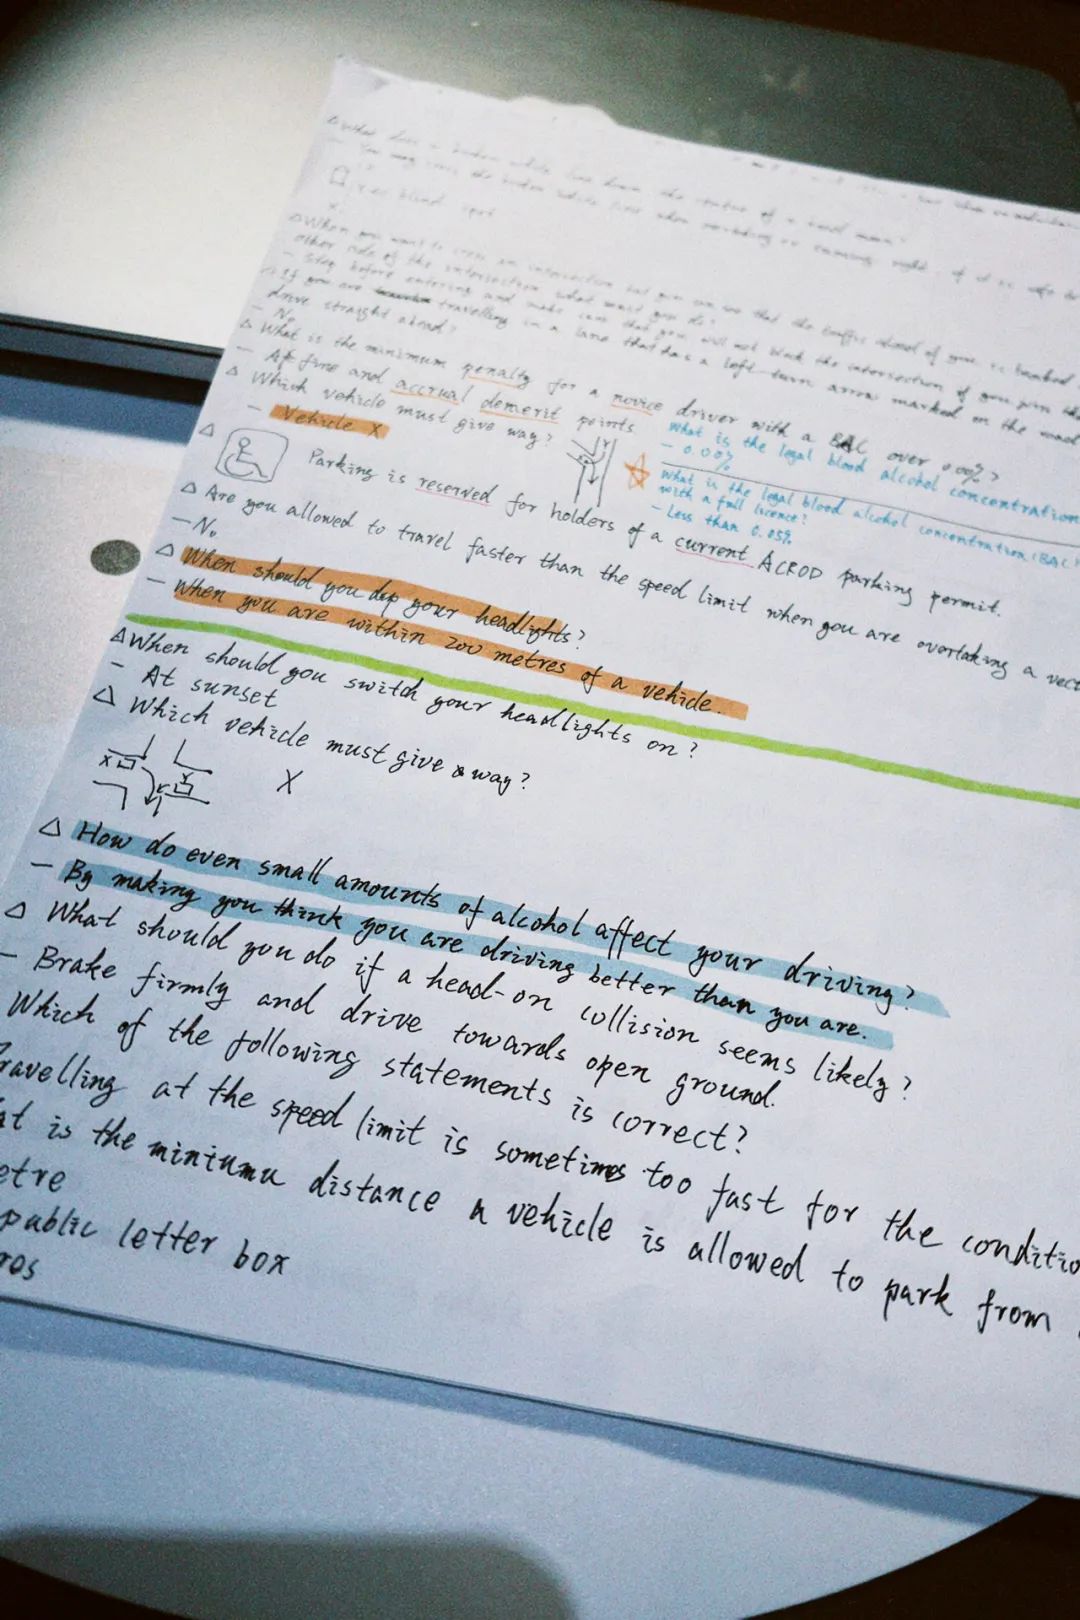 △ When you want to cross an intersection but you can see that the traffic ahead of you is banked
other side of the intersection what must you do?
– Stop before entering and make sure that you will not block the intersection if you join the
If you are travelling in a lane that has a left turn arrow marked on the road
drive straight ahead?
– No
△ What is the minimum penalty for a novice driver with a BAC over 0.00%?
– A fine and accrual demerit points
△ Which vehicle must give way?
– Vehicle X
What is the legal blood alcohol concentration
– 0.00%
What is the legal blood alcohol concentration (BAC)
with a full licence?
– Less than 0.05%
△ Parking is reserved for holders of a current ACROD parking permit.
△ Are you allowed to travel faster than the speed limit when you are overtaking a
– No
△ When should you dip your headlights?
– When you are within 200 metres of a vehicle.
△ When should you switch your headlights on?
– At sunset
△ Which vehicle must give way?
X Y X
△ How do even small amounts of alcohol affect your driving?
– By making you think you are driving better than you are.
△ What should you do if a head-on collision seems likely?
– Brake firmly and drive towards open ground.
Which of the following statements is correct?
ravelling at the speed limit is sometimes too fast for the conditio
at is the miniumu distance a vehicle is allowed to park from
etre
public letter box
ros